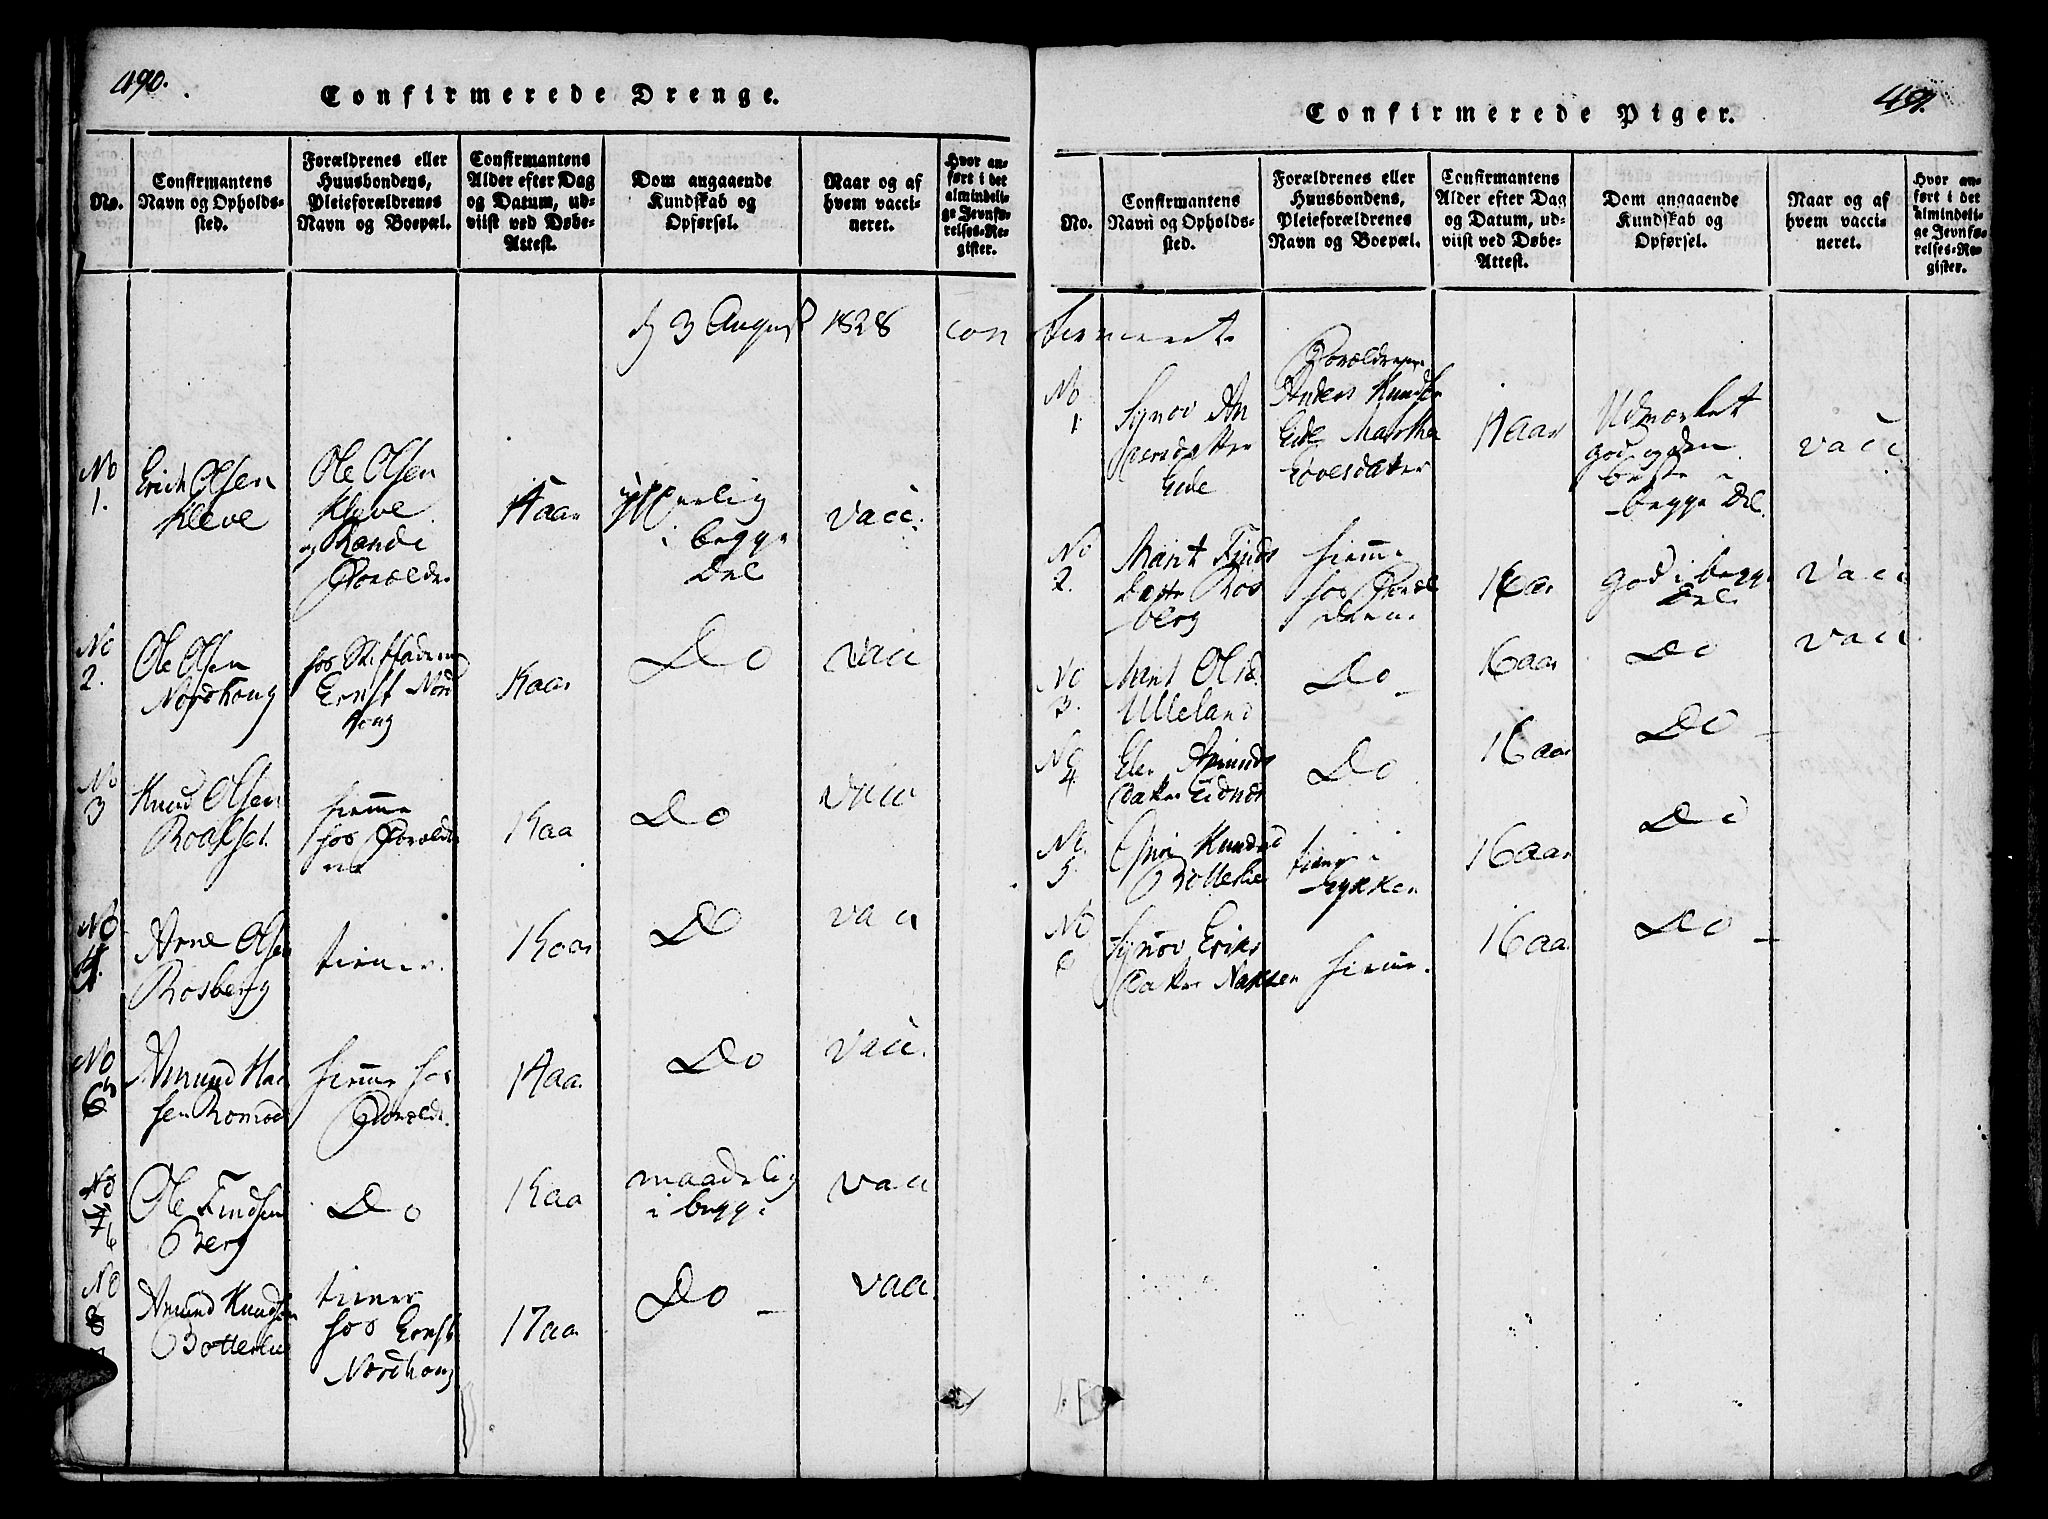 490.
Confirmerede Drenge.
No.
Confirmantens
Navn og Opholds-
sted.
Forældrenes eller
Huusbondens,
Pleieforældrenes
Navn og Boepæl.
Confirmantens
Alder efter Dag
og Datum, ud-
viist ved Døbe-
Attest.
Dom angaaende
Kundskab og
Opførsel.
Naar og af
hvem vacci-
neret.
Hvor an-
ført i det
almindeli-
ge Jevnfø-
relses-Re-
gister.
3 August 1828 con
No
1.
Erich Olsen
Kleve
Ole Olsen
Kleve
og Randi
Forældre
14 aar
i begge
Del
vacc.
No
2.
Ole Olsen
Nordhoug
hos
Ernst Nord
houg
Do
vacc
No
3
Knud Olsen
Roalset
hiemme
hos Foræld
ne
Do
vacc
No
4.
Arne Olsen
Rosberg
tiener.
Do
vacc
No
Amund Han
sen Romøe
hiemme hos
Foræld.
14 aa.
Do
vacc.
No
Ole Findsen
Berg
Do
maadelig
i begge
vacc
No
8
Amund Knudsen
Botterlie
tiener
hos Ernst
Nordhoug
17 aa.
Do
vacc.
491.
Confirmerede Piger.
No.
Confirmantens
Navn og Opholds-
sted.
Forældrenes eller
Huusbondens,
Pleieforældrenes
Navn og Boepæl.
Confirmantens
Alder efter Dag
og Datum, ud-
viist ved Døbe-
Attest.
Dom angaaende
Kundskab og
Opførsel.
Naar og af
hvem vacci-
neret.
Hvor an-
ført i det
almindeli-
ge Jevnfø-
relses-Re-
gister.
firmeret
No
1
Synov An
dersdatter
Eide
Forældrene
Anders Knudsen
Eide Martha
14 aar
Udmærket
god og den
beste i
begge Del.
vacc
No
2.
Marit Finds
Datter Ros
berg
hiemme
hos Foræl
drene
god i begge
Del
vacc
No
3.
Marit Olsd.
Ulleland
Do
16 aar
Do
vacc
No
4
Elen Amunds
datter
Do
16 aar
Do
No.
5
Guri Knudsd
Botterlie
tiener i
16 aar
Do
No
6
Synov Eriks
Datter
hiemme.
16 aa.
Do